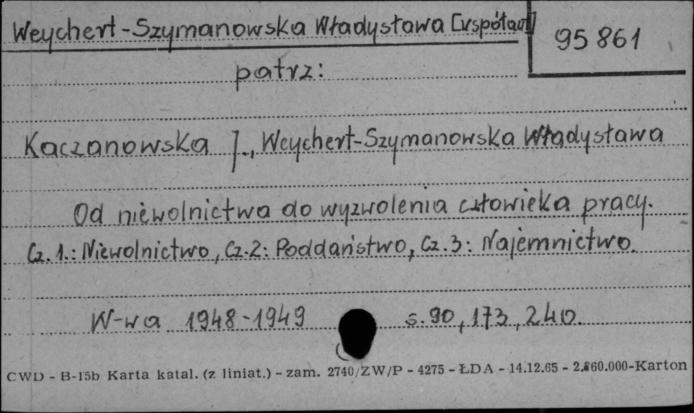 Weychert-Szymanowska Władysława [współaut]
95 861
patrz:
Kaczanowska J., Weychert-Szymanowska Władysława
Od niewolnictwa do wyzwolenia człowieka pracy.
Cz. 1.: Niewolnictwo, Cz. 2: Poddaństwo, Cz. 3: Najemnictwo.
W-wa 1948-1949 s. 90, 173, 240.
CWD - B-15b Karta katal. (z liniat.) - zam. 2740/ZW/P - 4275 - ŁDA - 14.12.65 - 2.860.000-Karton